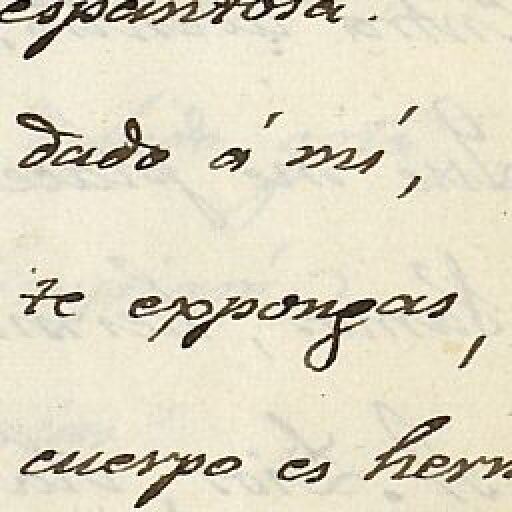 espantosa.
dado á mí,
te expongas,
cuerpo es herm